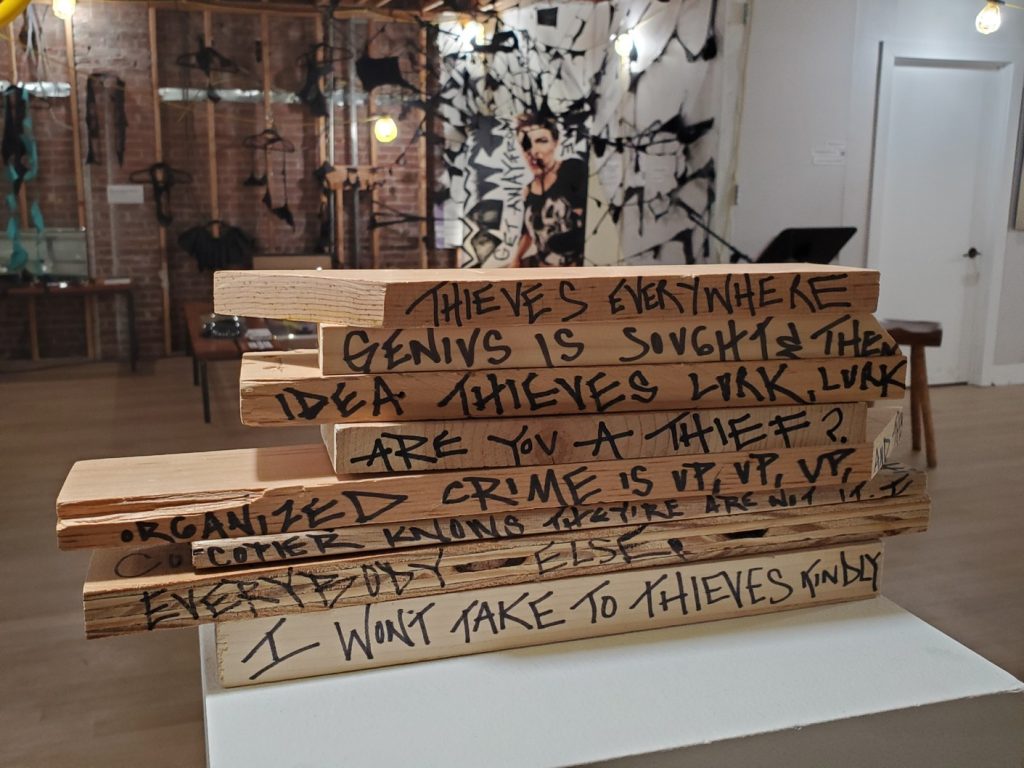 THIEVES EVERYWHERE
GENIUS IS SOUGHT & THEN
IDEA THIEVES LURK, LURK
ARE YOU A THIEF?
ORGANIZED CRIME IS UP, UP, UP,
COPIER KNOWS THEY'RE ARE NOT IT. I
EVERYBODY ELSE.
I WON'T TAKE TO THIEVES KINDLY
GET AWAY